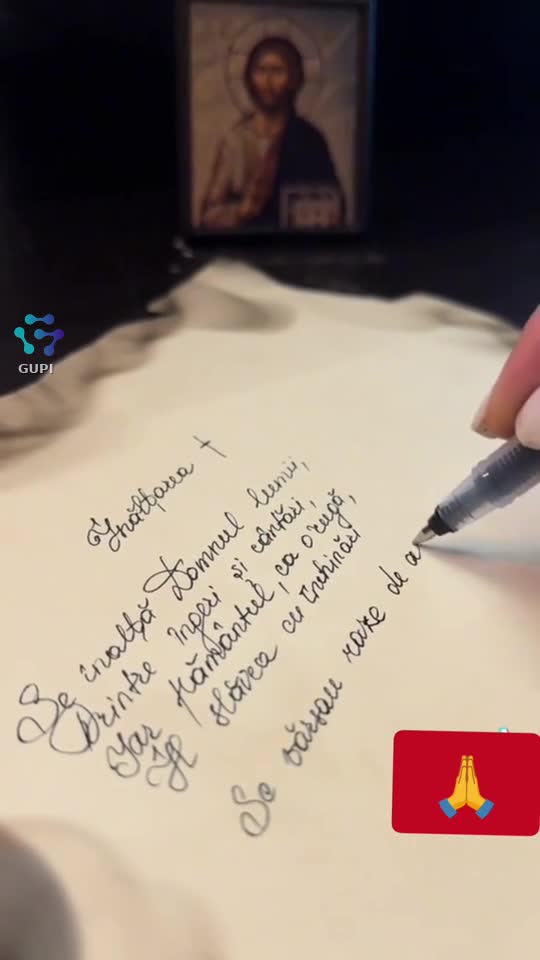 Înălțarea †
Se înalță Domnul lumii,
Printre îngeri și cântări,
Iar Pământul, ca o rugă,
Îl slăvea cu închinări
Se vărsau raze de a
GUPI